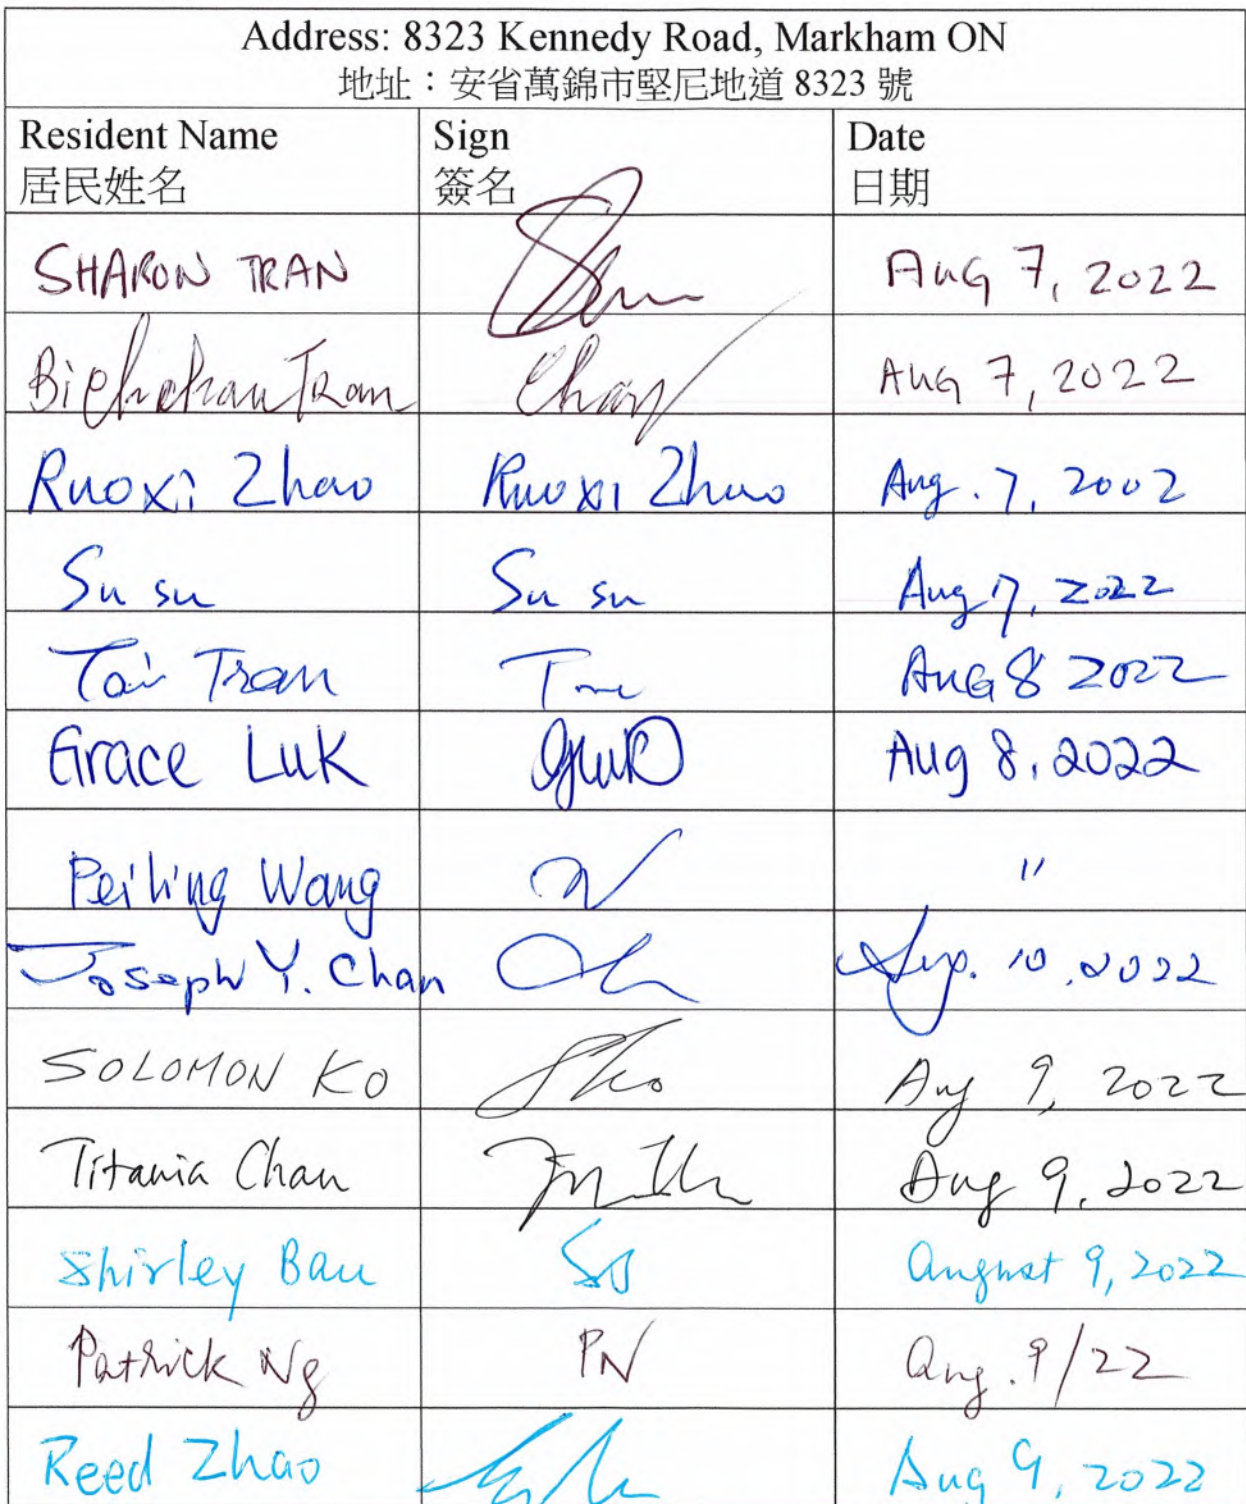 Address: 8323 Kennedy Road, Markham ON
地址：安省萬錦市堅尼地道 8323 號
Resident Name Sign Date
居民姓名 簽名 日期
SHARON TRAN AUG 7, 2022
Tran AUG 7, 2022
Ruoxi Zhao Ruoxi Zhao Aug. 7, 2002
Su su Su su Aug 7, 2022
Tai Tran AUG 8 2022
Grace Luk Aug 8, 2022
Peiling Wang "
Joseph Y. Chan 10, 2022
SOLOMON KO SKo Aug 9, 2022
Titania Chan Aug 9, 2022
Shirley Bau August 9, 2022
Patrick Ng PN Aug. 9/22
Reed Zhao Aug 9, 2022